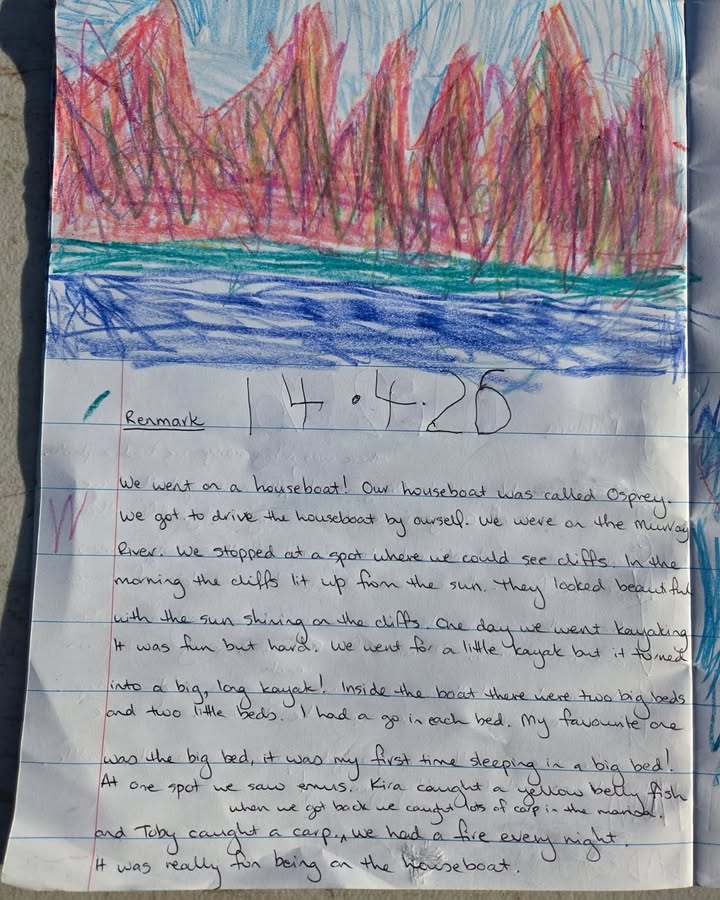 14.4.26
Renmark
We went on a houseboat! Our houseboat was called Osprey.
We got to drive the houseboat by ourself. We were on the Murray
River. We stopped at a spot where we could see cliffs. In the
morning the cliffs lit up from the sun. They looked beautiful
with the sun shining on the cliffs. One day we went kayaking
It was fun but hard. We went for a little kayak but it turned
into a big, long kayak! Inside the boat there were two big beds
and two little beds. I had a go in each bed. My favourite one
was the big bed, it was my first time sleeping in a big bed!
At one spot we saw emus. Kira caught a yellow belly fish
when we got back we caught lots of carp in the marina.
and Toby caught a carp., we had a fire every night.
It was really fun being on the houseboat.